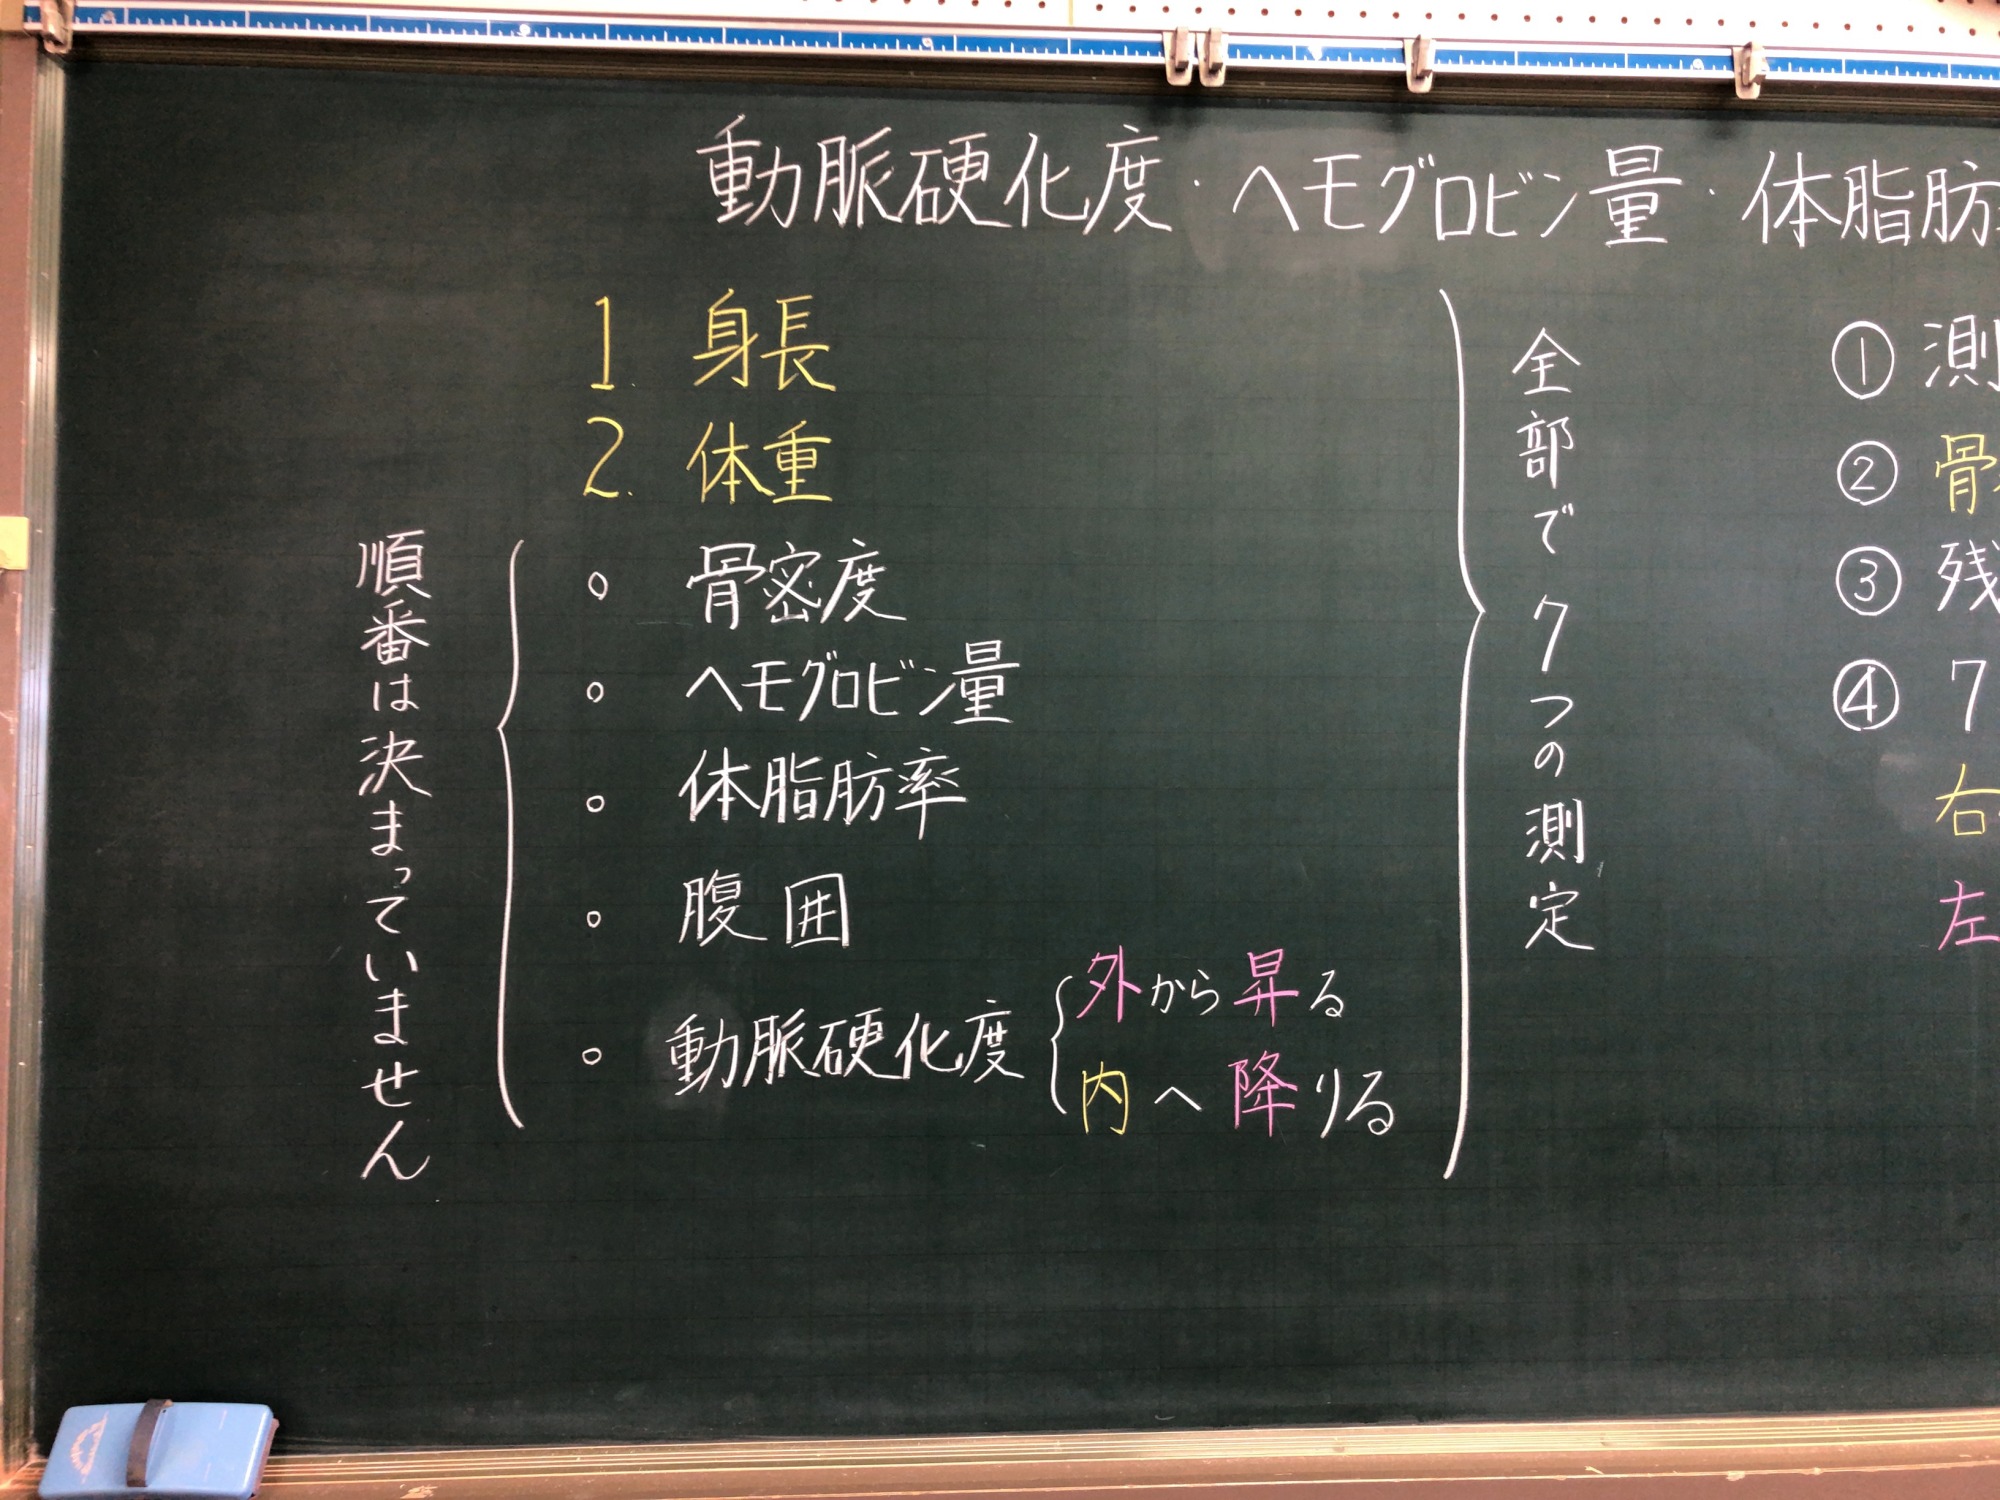 動脈硬化度・ヘモグロビン量・体脂肪
1. 身長
2. 体重
順番は決まっていません
○ 骨密度
○ ヘモグロビン量
○ 体脂肪率
○ 腹囲
○ 動脈硬化度
外から昇る
内へ降りる
全部で7つの測定
① 測
② 骨
③ 残
④ 7
右
左